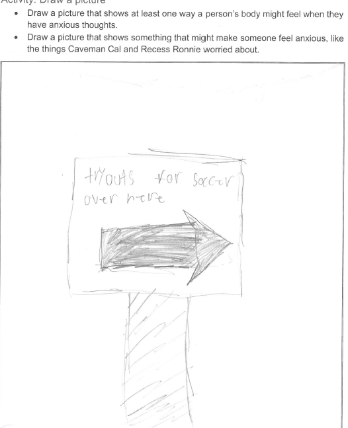 Activity: Draw a picture
• Draw a picture that shows at least one way a person's body might feel when they
have anxious thoughts.
• Draw a picture that shows something that might make someone feel anxious, like
the things Caveman Cal and Recess Ronnie worried about.
tryouts for soccer
over here